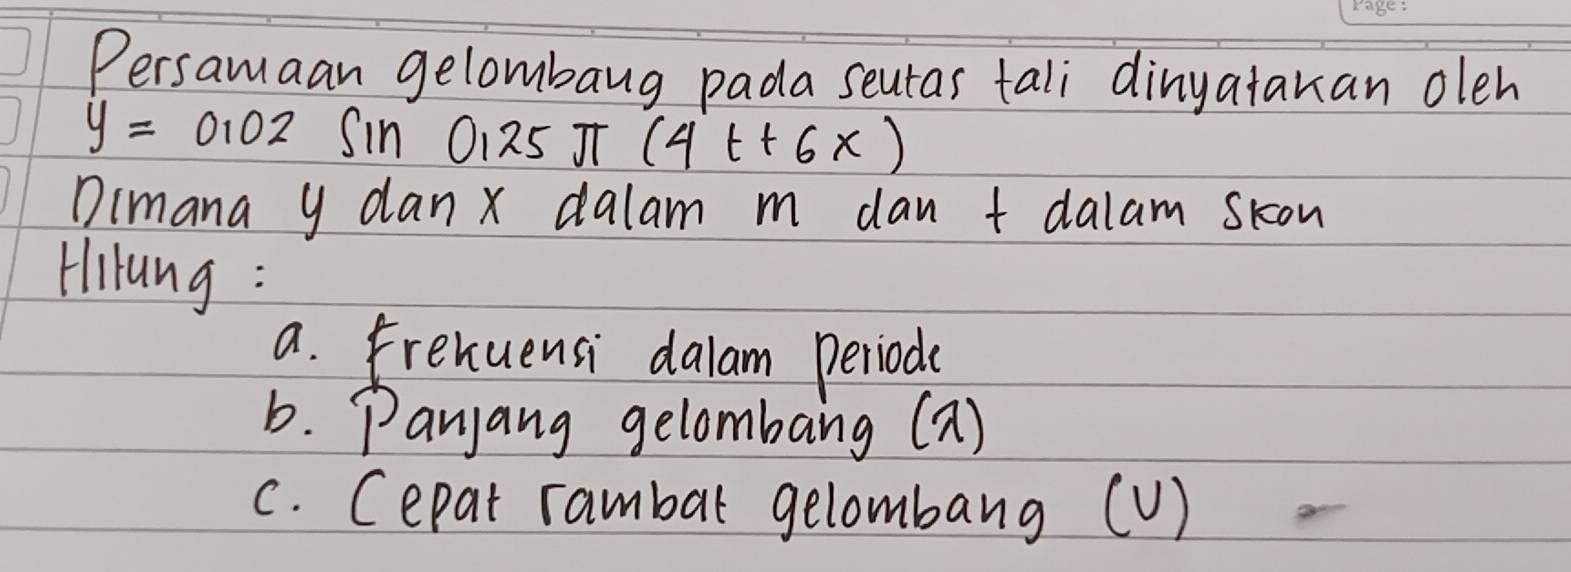 Page:
Persamaan gelombang pada seutas tali dinyatakan oleh
y = 0,02 Sin 0,25 π (4 t + 6 x)
Dimana y dan x dalam m dan t dalam skon
Hitung :
a. Frekuensi dalam periode
b. Panjang gelombang (λ)
c. Cepat rambat gelombang (V)